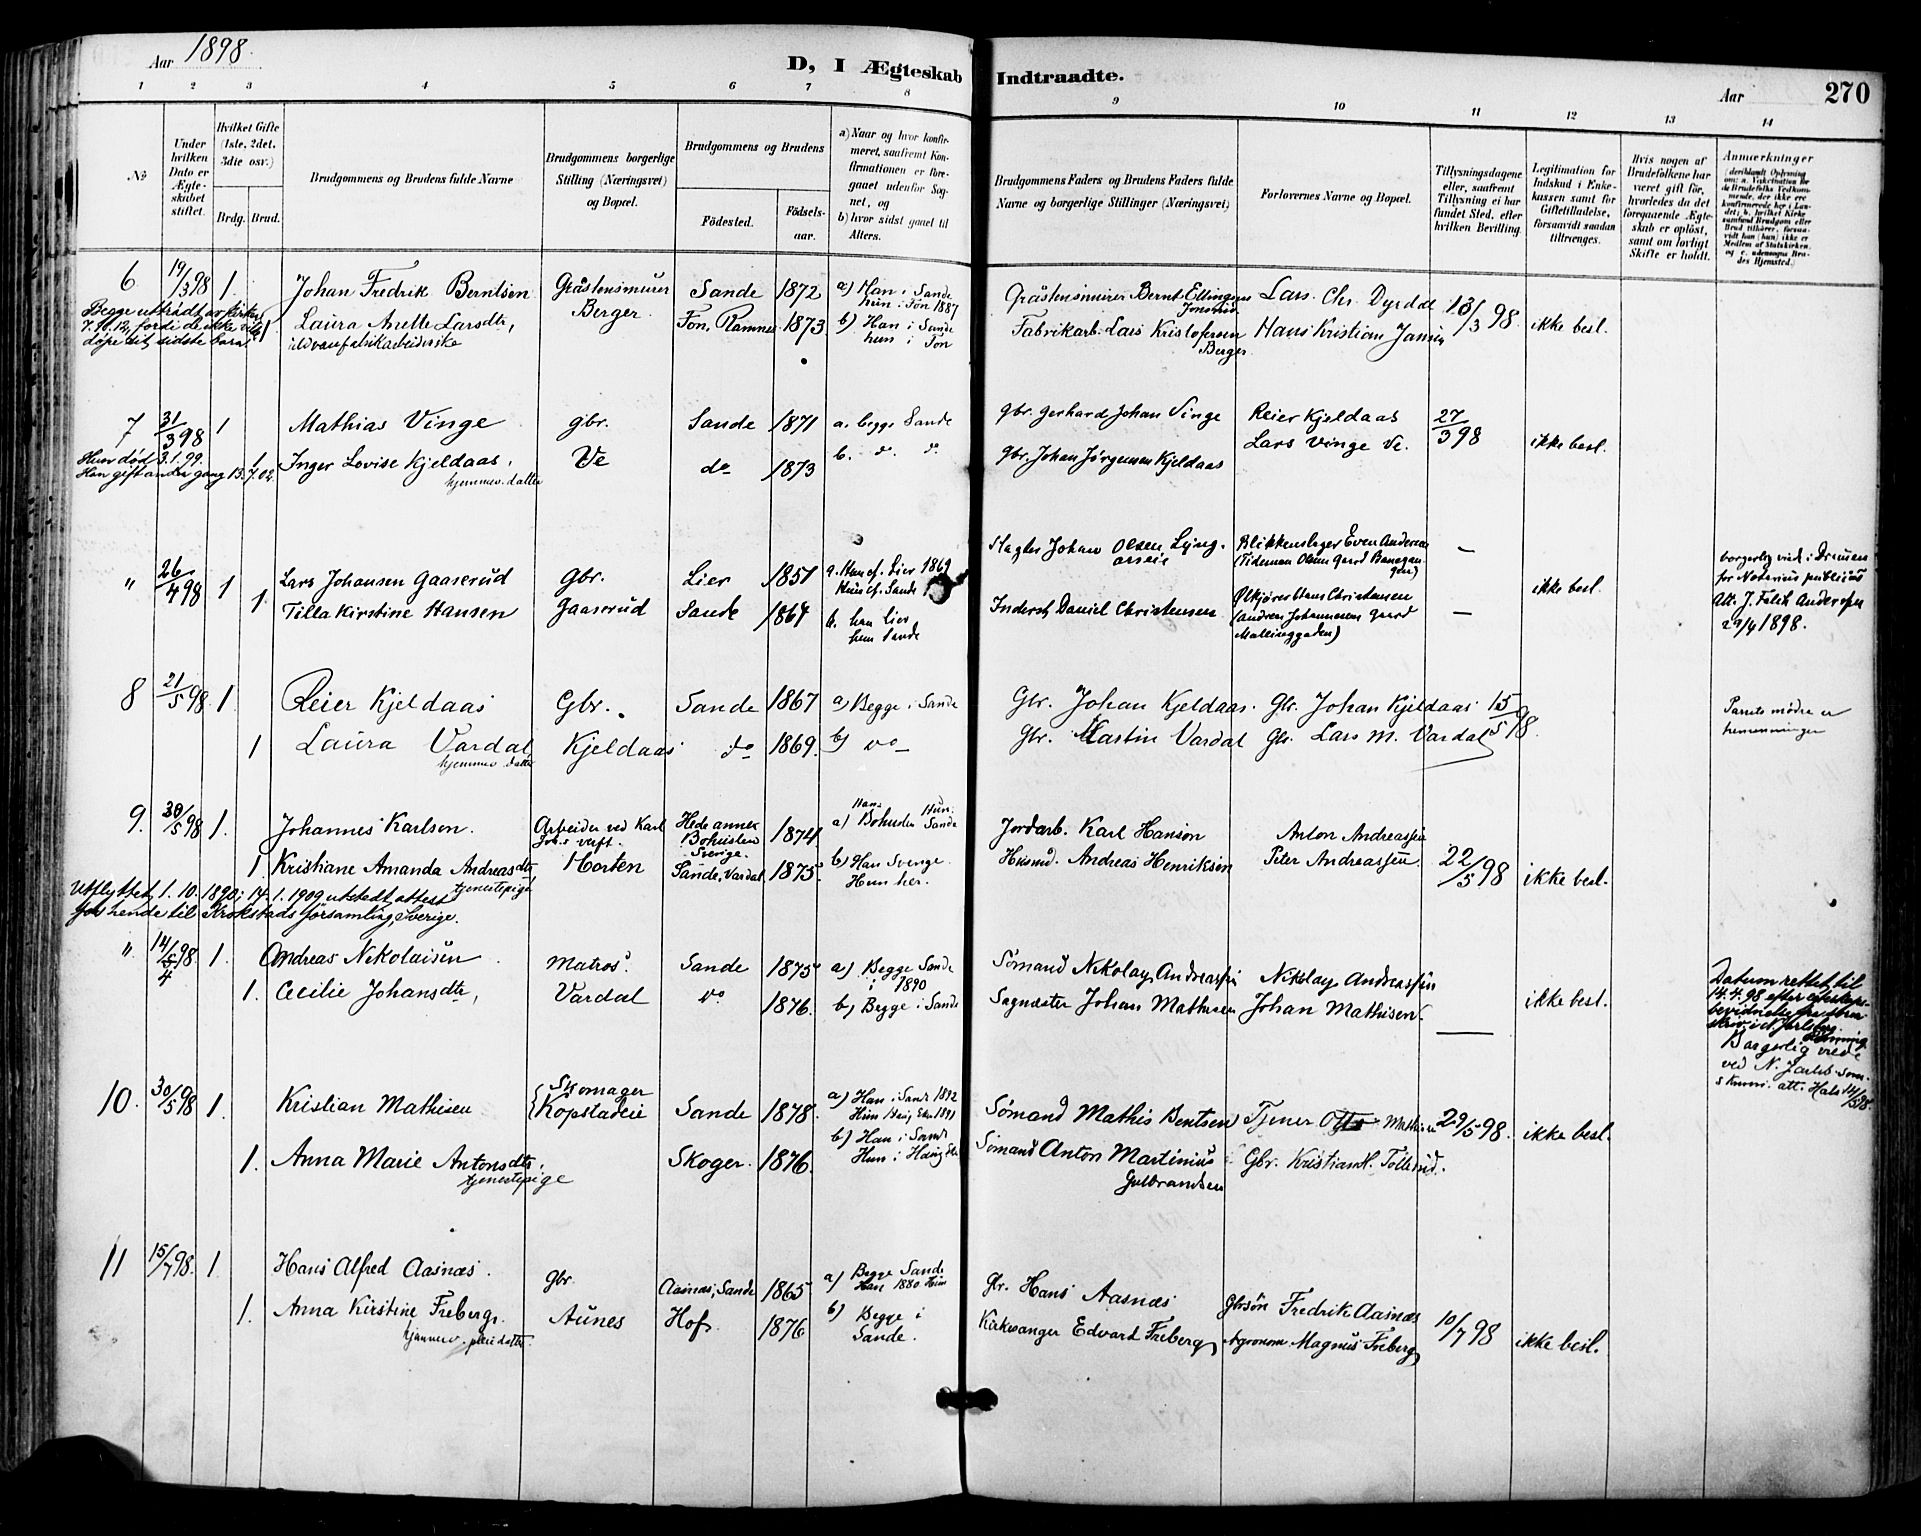 Aar 1898.
D, I Ægteskab Indtraadte.
Aar
270
1 2 3 4 5 6 7 8 9 10 11 12 13 14
No
Under hvilken Dato er Ægteskabet stiftet.
Hvilket Gifte (1ste, 2det, 3die osv.)
Brdg. Brud.
Brudgommens og Brudens fulde Navne
Brudgommens borgerlige Stilling (Næringsvei) og Bopæl.
Brudgommens og Brudens
Fødested. Fødselsaar.
a) Naar og hvor konfirmeret, saafremt Konfirmationen er foregaaet udenfor Sognet, og
b) hvor sidst gaaet til Alters.
Brudgommens Faders og Brudens Faders fulde Navne og borgerlige Stillinger (Næringsvei)
Forlovernes Navne og Bopæl.
Tillysningsdagene eller, saafremt Tillysning ei har fundet Sted, efter hvilken Bevilling.
Legitimation for Indskud i Enkekassen samt for Giftetilladelse, forsaavidt saadan tiltrænges.
Hvis nogen af Brudefolkene har været gift før, hvorledes da det foregaaende Ægteskab er opløst, samt om lovligt Skifte er holdt.
Anmærkninger
6 19/3 98 1. Johan Fredrik Berntsen Gråstensmurer Sande 1872 a) Han i Sande Gråstensmurer Bernt Ellingsen Lars Chr. Dyrdal 13/3 98 ikke besl.
hun i Fon 1887
Begge utträdt av kirken
7.10.12, fordi de ikke vilde
döpe sit sidste barn
1 Laura Anette Larsdtr, Berger Fon, Ramnes 1873 b) Han i Sande Fabrikarb. Lars Kristofersen Hans Kristian Jansen
hun i Fon Berger
7 31/3 98 1 Mathias Vinge gbr. Sande 1871 a. begge Sande gbr. Gerhard Johan Vinge Reier Kjeldaas 27/3 98 ikke besl.
Lars Vinge Ve.
Hun död 3.1.99.
Han gift anden gang 13.7.02.
1 Inger Lovise Kjeldaas, Ve do 1873 b. do. do gbr. Johan Jörgensen Kjeldaas
hjemmev. datter
" 26/4 98 1 Lars Johansen Gaaserud Gbr. Lier 1851 a. Han cf. Lier 1869 Slagter Johan Olsen Lyng. Blikkenslager Even Andersen — ikke besl. borgerlig viet i Drammen
Hun cf. Sande for Notarius publicus
1. Tilla Kirstine Hansen Gaaserud Sande 1864 b. han Lier Inderst Daniel Christensen Ølkjører Hans Christensen — Att. J. Falck Andersen
hun Sande (Andreas Johannesen gaard 29/4 1898.
Mallinggaden)
8 21/5 98 1 Reier Kjeldaas Gbr. Sande 1867 a) Begge i Sande Gbr. Johan Kjeldaas. Gbr. Johan Kjeldaas 15/5 98 Parrets mödre er
1 Laura Vardal, Kjeldaas do 1869. b) do Gbr. Martin Vardal Gbr. Lars M. Vardal
hjemmev. datter
9. 30/5 98 1. Johannes Karlson. Arbeider ved Karl Hede annex 1874 a) Han Bohuslen Hun Sande Jordarb. Karl Hanson Anton Andreassen
Joh.s verft. Bohuslen
Sverige.
1. Kristiane Amanda Andreasdtr. Horten Sande, Vardal 1875. b) Han Sverige. Husmd. Andreas Henriksen Peter Andreassen. 22/5 98 ikke besl.
tjenestepige Hun her.
Utflyttet 1.10.1890; 14.1.1909 utstedt attest
for hende til Krokstads församling, Sverige.
" 14/5 98. 1. Andreas Nikolaisen Matros. Sande 1875 a) Begge Sande Sömand Nikolay Andreassen Nikolay Andreassen
4 i 1890
1. Cecilie Johansdtr, Vardal do 1876. b) Begge i Sande Sagmester Johan Mathisen Johan Mathisen. — ikke besl.
Datum rettet til
14.4.98 efter egteskaps-
Borgerlig viede
10. 30/5 98 1. Kristian Mathisen Skomager Sande 1878. a) Han i Sand 1892 Sömand Mathis Bentsen Tjener Otto Mathisen 29/5 98. ikke besl.
Kopstadeie
b) Han i Sand
1. Anna Marie Antonsdtr. Skoger. 1876. Sömand Anton Martinius Gbr. Kristian H. Tollerud.
tjenestepige Gulbrandsen
11 15/7 98. 1 Hans Alfred Aasnæs. gbr. Aasnæs, Sande 1865 a) Begge Sande gbr. Hans Aasnæs Gbrsön Fredrik Aasnæs 10/7 98 ikke besl.
Han 1880 Hun
1. Anna Kirstine Freberg. Aunes Hof. 1876 b) Begge i Kirkesanger Edvard Freberg Agronom Magnus Freberg
hjemmev. pleiedatter. Sande.